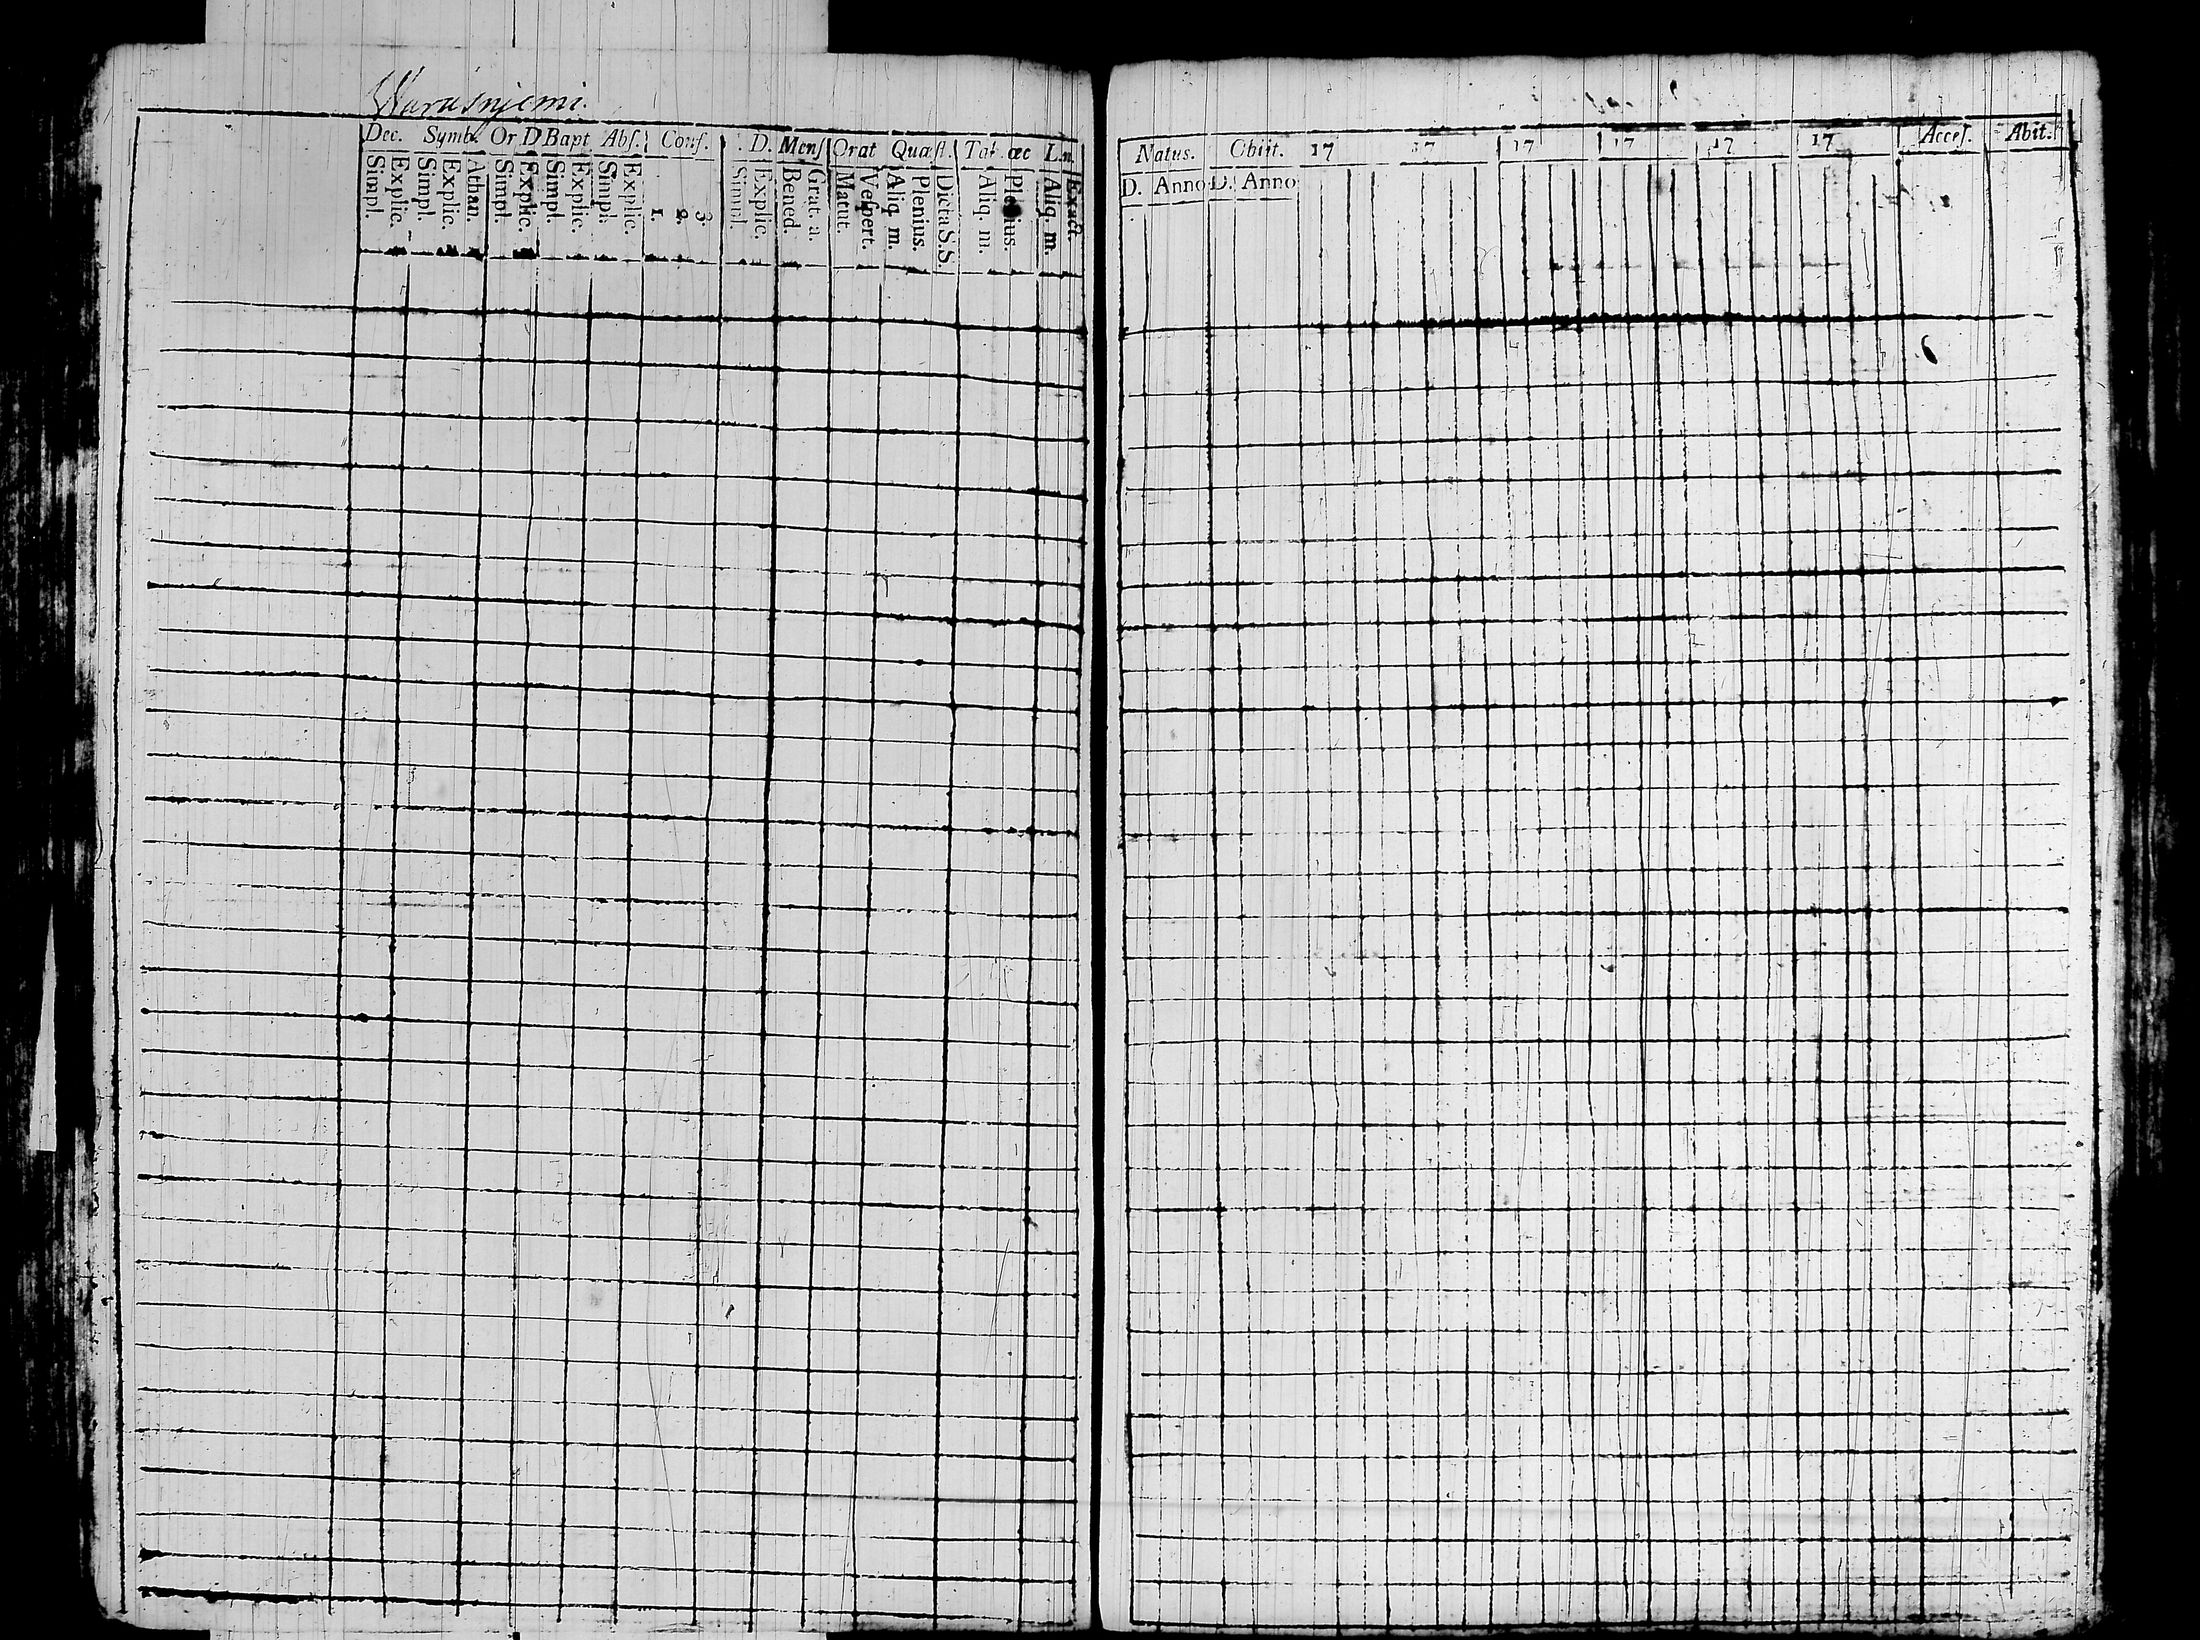 Warasnjemi.
Dec. Symb. Or D Bapt Abſ. Conf. D. Menſ Orat Quæſt. Tab. œc
Simpl. Explic. Simpl. Explic. Athan. Simpl. Explic. Simpl. Explic. Simpl. Explic. 1. 2. 3. Simpl. Explic. Bened. Grat. a. Matut. Veſpert. Aliq. m. Plenius. Dicta.S.S. Aliq. m. Plenius. Aliq. m. Exact.
Natus. Obiit. 17 17 17 17 17 17 Acceſ. Abit.
D. Anno D. Anno